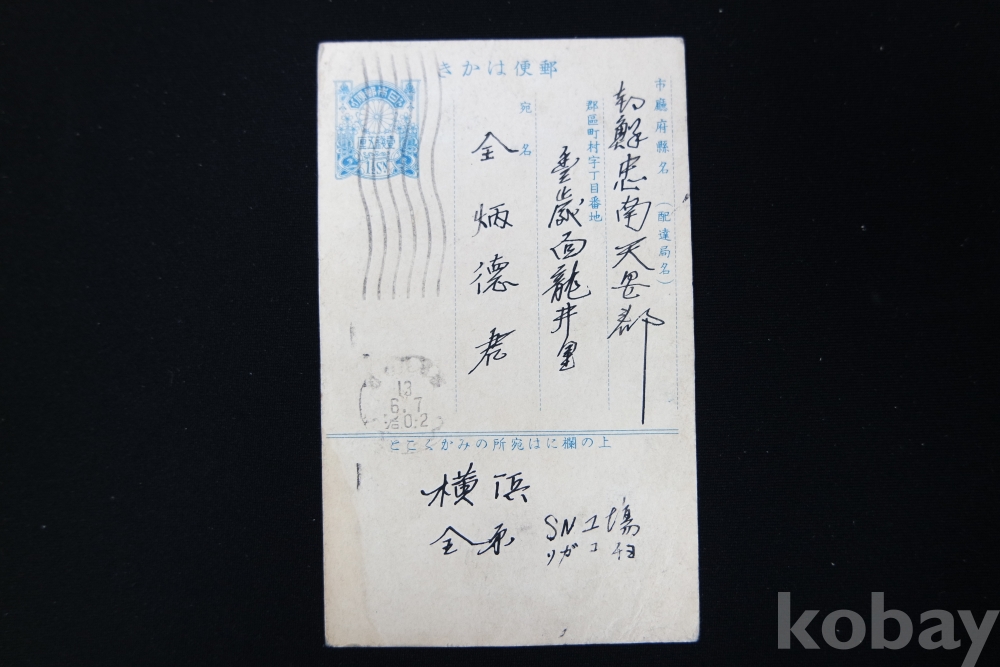 郵便はかき
市廳府縣名(配達局名)
朝鮮忠南天安郡
郡區町村字丁目番地
聖歲面龍井里
宛名
全炳德君
大日本帝國郵便
13
6.7
上の欄には宛所のみかくこと
横浜
SN工場
kobay